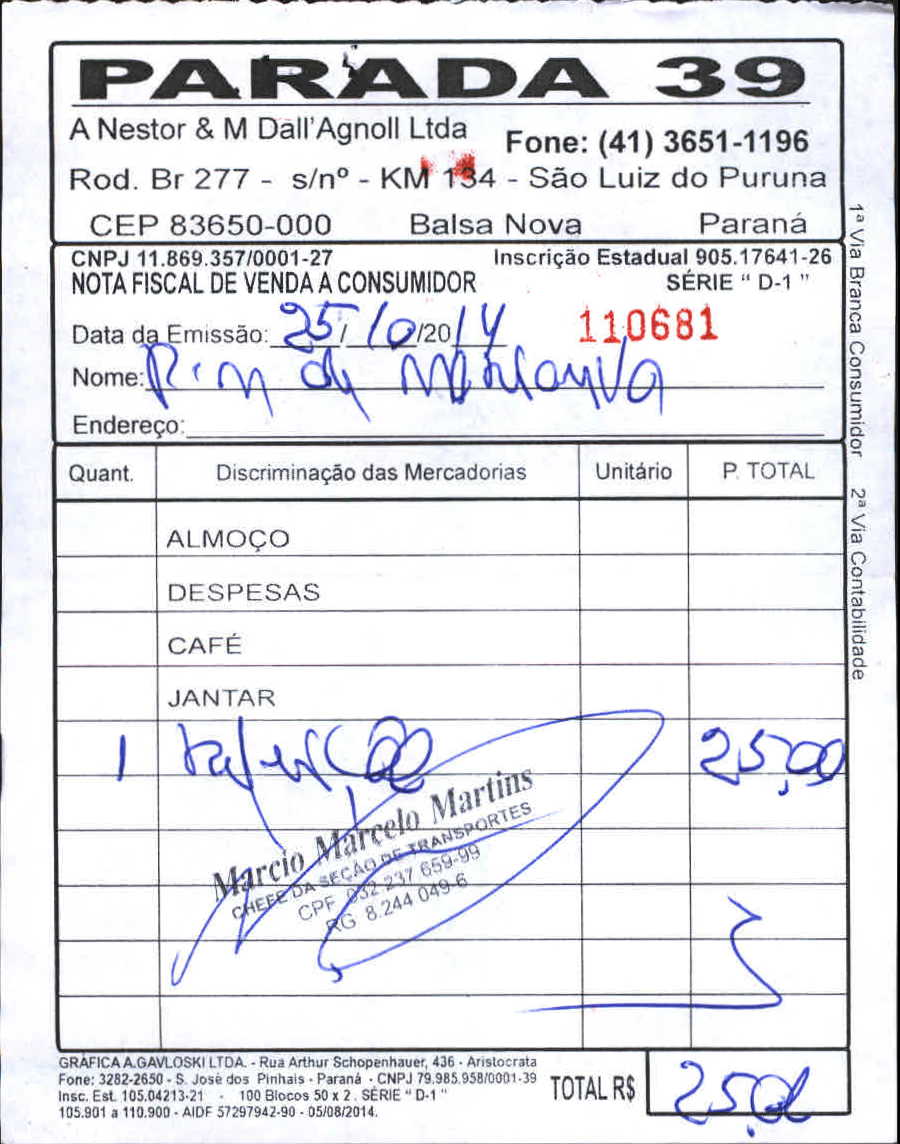 PARADA 39
A Nestor & M Dall'Agnoll Ltda Fone: (41) 3651-1196
Rod. Br 277 - s/nº - KM 134 - São Luiz do Puruna
CEP 83650-000 Balsa Nova Paraná
CNPJ 11.869.357/0001-27 Inscrição Estadual 905.17641-26
NOTA FISCAL DE VENDA A CONSUMIDOR SÉRIE " D-1 "
Data da Emissão: 25/10/2014 110681
Nome: P. M de
Endereço:
Quant. Discriminação das Mercadorias Unitário P. TOTAL
ALMOÇO
DESPESAS
CAFÉ
JANTAR
1 25,00
Marcio Marcelo Martins
CHEFE DA SEÇÃO DE TRANSPORTES
CPF 032 237 659-99
RG 8.244 049-6
GRÁFICA A.GAVLOSKI LTDA. - Rua Arthur Schopenhauer, 436 - Aristocrata
Fone: 3282-2650 - S. José dos Pinhais - Paraná - CNPJ 79.985.958/0001-39
Insc. Est. 105.04213-21 - 100 Blocos 50 x 2. SÉRIE " D-1 "
105.901 a 110.900 - AIDF 57297942-90 - 05/08/2014.
TOTAL R$ 25,00
1ª Via Branca Consumidor 2ª Via Contabilidade